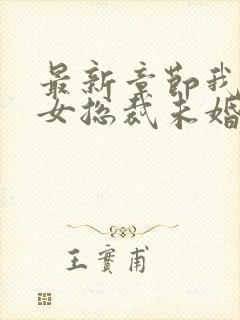 最新章節我
女总裁未婚
王實甫